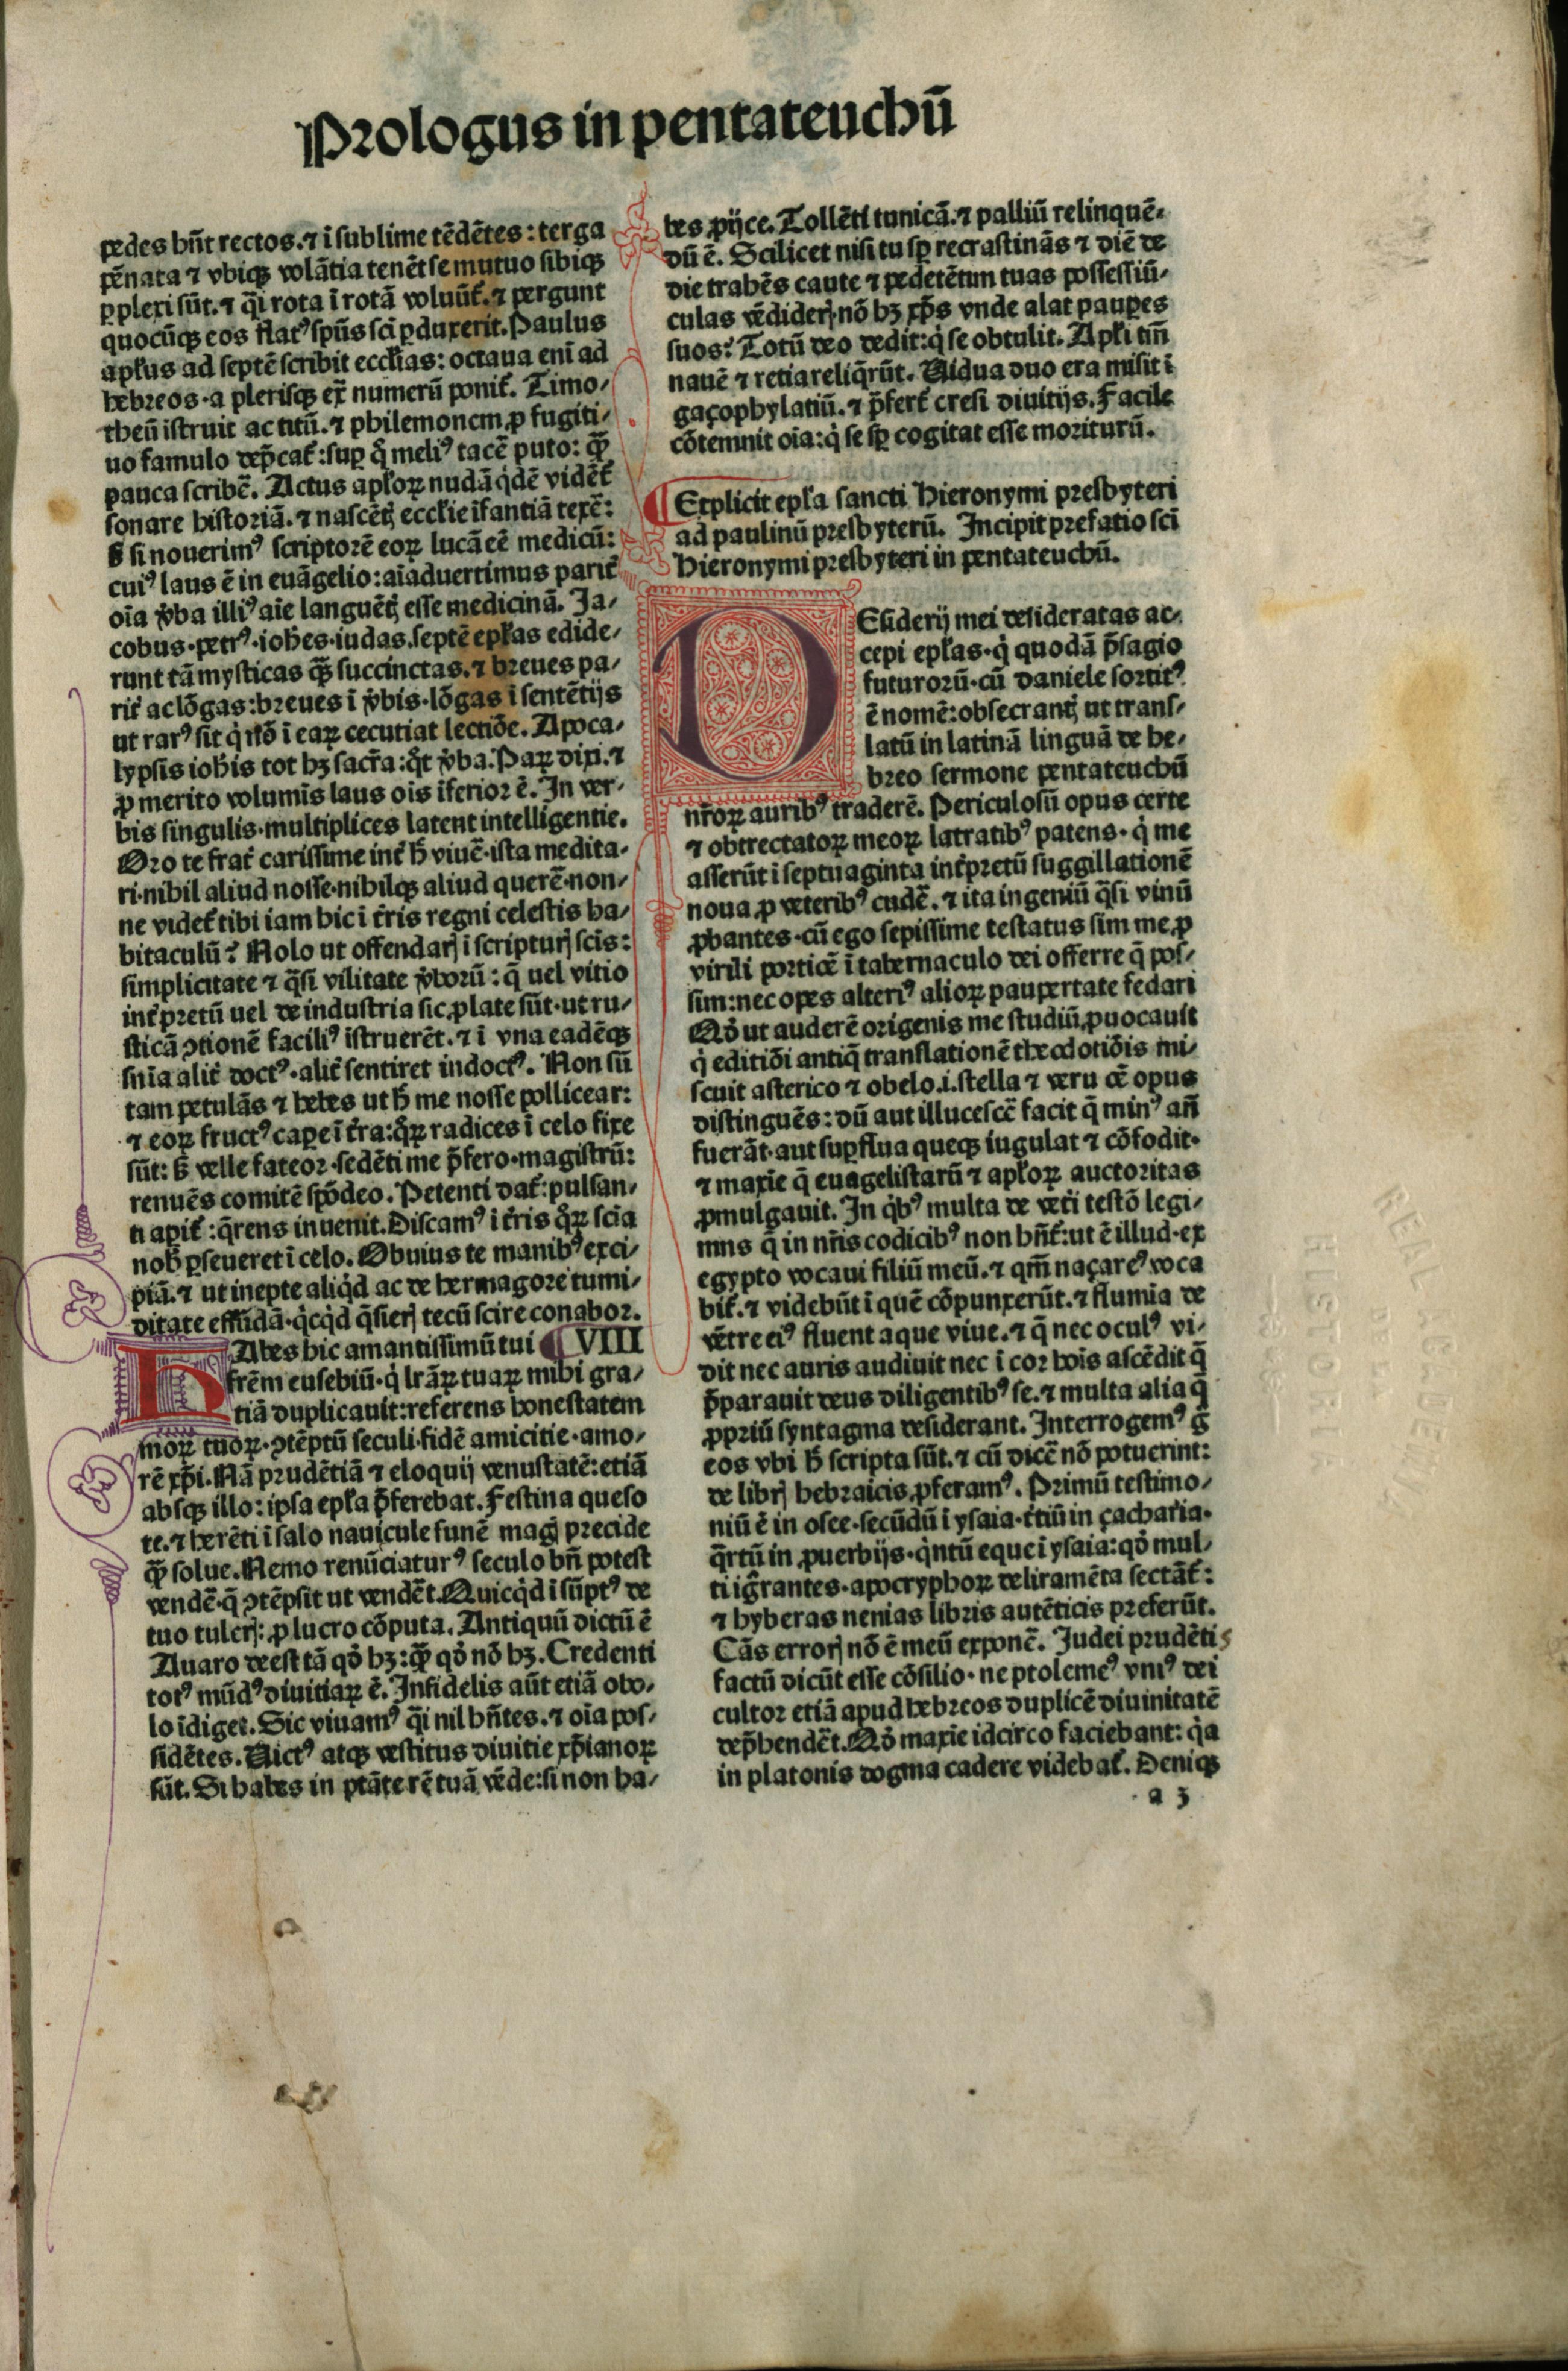 Prologus in pentateuchū
pedes hn̄t rectos. ⁊ ī sublime tēdētes : terga
pēnata ⁊ vbiqꝫ volātia tenēt se mutuo sibiqꝫ
ꝑplexi sūt. ⁊ q̄i rota ī rotā voluūt᷑. ⁊ pergunt
quocūqꝫ eos flatꝰ sp̄us sc̄i ꝑduxerit. Paulus
apłus ad septē scribit eccłias : octaua enī ad
hebreos · a plerisqꝫ ex̄ numerū ponit᷑. Timo⸗
theū īstruit ac titū. ⁊ philemonem ꝓ fugiti⸗
uo famulo dep̄cat᷑ : suꝑ q̄ meliꝰ tacē puto : qꝫ̄
pauca scribē. Actus apłoꝝ nudā q̇dē vidēt᷑
sonare historiā. ⁊ nascētꝭ eccłie īfantiā texē :
ꝫ si nouerimꝰ scriptorē eoꝝ lucā eē medicū :
cuiꝰ laus ē in euāgelio : aīaduertimus parit᷑
oīa v̄ba illiꝰ aīe languētꝭ esse medicinā. Ja⸗
cobus · petrꝰ · ioħes · iudas. septē epłas edide⸗
runt tā mysticas qꝫ̄ succinctas. ⁊ breues pa⸗
rit᷑ ac lōgas : breues ī v̄bis · lōgas ī sentētijs
ut rarꝰ sit q̇ nō ī eaꝝ cecutiat lectiōe. Apoca⸗
lypsis ioħis tot hꝫ sacr̄a : q̄t v̄ba. Paꝝ dixi. ⁊
ꝓ merito volumīs laus oīs īferior ē. In ver⸗
bis singulis · multiplices latent intelligentie.
Oro te frat᷑ carissime int᷑ ħ viuē · ista medita⸗
ri · nihil aliud nosse · nihilqꝫ aliud querē · non⸗
ne videt᷑ tibi iam hic ī t᷑ris regni celestis ha⸗
bitaculū? Nolo ut offendarꝭ ī scripturꝭ scīs :
simplicitate ⁊ q̄si vilitate v̄borū : q̄ uel vitio
int᷑pretū uel de industria sic ꝓlate sūt · ut ru⸗
sticā ↄtionē faciliꝰ īstruerēt. ⁊ ī vna eadēqꝫ
sn̄ia alit᷑ doctꝰ · alit᷑ sentiret indoctꝰ. Non sū
tam petulās ⁊ hebes ut ħ me nosse pollicear :
⁊ eoꝝ fructꝰ caꝑe ī t᷑ra : q̄ꝝ radices ī celo fixe
sūt : ꝫ velle fateor · sedēti me p̄fero · magistrū :
renuēs comitē spōdeo. Petenti dat᷑ : pulsan⸗
ti apit᷑ : q̄rens inuenit. Discamꝰ ī t᷑ris q̄ꝝ scīa
nob̄ ꝑseueret ī celo. Obuius te manibꝰ exci⸗
piā. ⁊ ut inepte aliq̇d ac de hermagore tumi⸗
ditate effūdā · q̇cq̇d q̄sierꝭ tecū scire conabor.
HAbes hic amantissimū tui ¶ VIII
frēm eusebiū · q̇ lr̄aꝝ tuaꝝ mihi gra⸗
tiā duplicauit : referens honestatem
moꝝ tuoꝝ · ↄtēptū seculi · fidē amicitie · amo⸗
rē xp̄i. Nā prudētiā ⁊ eloquij venustatē : etiā
absqꝫ illo : ipsa epła p̄ferebat. Festina queso
te. ⁊ herēti ī salo nauicule funē magꝭ precide
qꝫ̄ solue. Nemo renūciaturꝰ seculo bn̄ potest
vendē · q̄ ↄtēpsit ut vendēt. Quicq̇d ī sūptꝰ de
tuo tulerꝭ : ꝓ lucro cōputa. Antiquū dictū ē
Auaro deest tā qḋ hꝫ : qꝫ̄ qḋ nō hꝫ. Credenti
totꝰ mūdꝰ diuitiaꝝ ē. Infidelis aūt etiā obo⸗
lo īdiget. Sic viuamꝰ q̄i nil hn̄tes. ⁊ oīa pos⸗
sidētes. Victꝰ atqꝫ vestitus diuitie xp̄ianoꝝ
sūt. Si habes in ptāte rē tuā vēde : si non ha⸗
bes ꝓijce. Tollēti tunicā. ⁊ palliū relinquē⸗
dū ē. Scilicet nisi tu sꝑ recrastinās ⁊ diē de
die trahēs caute ⁊ pedetētim tuas possessiū⸗
culas vēdiderꝭ · nō hꝫ xp̄s vnde alat pauꝑes
suos? Totū deo dedit : q̇ se obtulit. Apłi tm̄
nauē ⁊ retia reliq̄rūt. Vidua duo era misit ī
gaçophylatiū. ⁊ p̄fert᷑ cresi diuitijs. Facile
cōtemnit oīa : q̇ se sꝑ cogitat esse moriturū.
¶ Explicit epła sancti Hieronymi presbyteri
ad paulinū presbyterū. Incipit prefatio sc̄i
Hieronymi presbyteri in pentateuchū.
DEsiderij mei desideratas ac⸗
cepi epłas · q̇ quodā p̄sagio
futurorū · cū daniele sortitꝰ
ē nomē : obsecrantꝭ ut trans⸗
latū in latinā linguā de he⸗
breo sermone pentateuchū
nr̄oꝝ auribꝰ traderē. Periculosū opus certe
⁊ obtrectatoꝝ meoꝝ latratibꝰ patens · q̇ me
asserūt ī septuaginta int᷑pretū suggillationē
noua ꝓ veteribꝰ cudē. ⁊ ita ingeniū q̄si vinū
ꝓbantes · cū ego sepissime testatus sim me ꝓ
virili porticē ī tabernaculo dei offerre q̄ pos⸗
sim : nec opes alteriꝰ alioꝝ paupertate fedari
Qḋ ut auderē origenis me studiū ꝓuocauit
q̇ editiōi antiq̄ translationē theodotiōis mi⸗
scuit asterico ⁊ obelo .i. stella ⁊ veru oē opus
distinguēs : dū aut illucescē facit q̄ minꝰ añ
fuerāt · aut suꝑflua queqꝫ iugulat ⁊ cōfodit ·
⁊ maxīe q̄ euāgelistarū ⁊ apłoꝝ auctoritas
ꝓmulgauit. In q̇bꝰ multa de vet᷑i testō legi⸗
mus q̄ in nr̄is codicibꝰ non hn̄t᷑ : ut ē illud · ex
egypto vocaui filiū meū. ⁊ qm̄ naçareꝰ voca
bit᷑. ⁊ videbūt ī quē cōpunxerūt. ⁊ flumīa de
vētre eiꝰ fluent aque viue. ⁊ q̄ nec oculꝰ vi⸗
dit nec auris audiuit nec ī cor hoīs ascēdit q̄
p̄parauit deus diligentibꝰ se. ⁊ multa alia q̄
ꝓpriū syntagma desiderant. Interrogemꝰ g̊
eos vbi ħ scripta sūt. ⁊ cū dicē nō potuerint :
de librꝭ hebraicis ꝓferamꝰ. Primū testimo⸗
niū ē in osee · secūdū ī ysaia · t᷑tiū in çacharia ·
q̄rtū in ꝓuerbijs · q̇ntū eque ī ysaia : qḋ mul⸗
ti igr̄antes · apocryphoꝝ deliramēta sectāt᷑ :
⁊ hyberas nenias libris autēticis preferūt.
Cās errorꝭ nō ē meū exponē. Judei prudēti
factū dicūt esse cōsilio · ne ptolemeꝰ vniꝰ dei
cultor etiā apud hebreos duplicē diuinitatē
dep̄hendēt. Qḋ maxīe idcirco faciebant : q̇a
in platonis dogma cadere videbat᷑. Deniqꝫ
a 3
REAL ACADEMIA
DE LA
HISTORIA